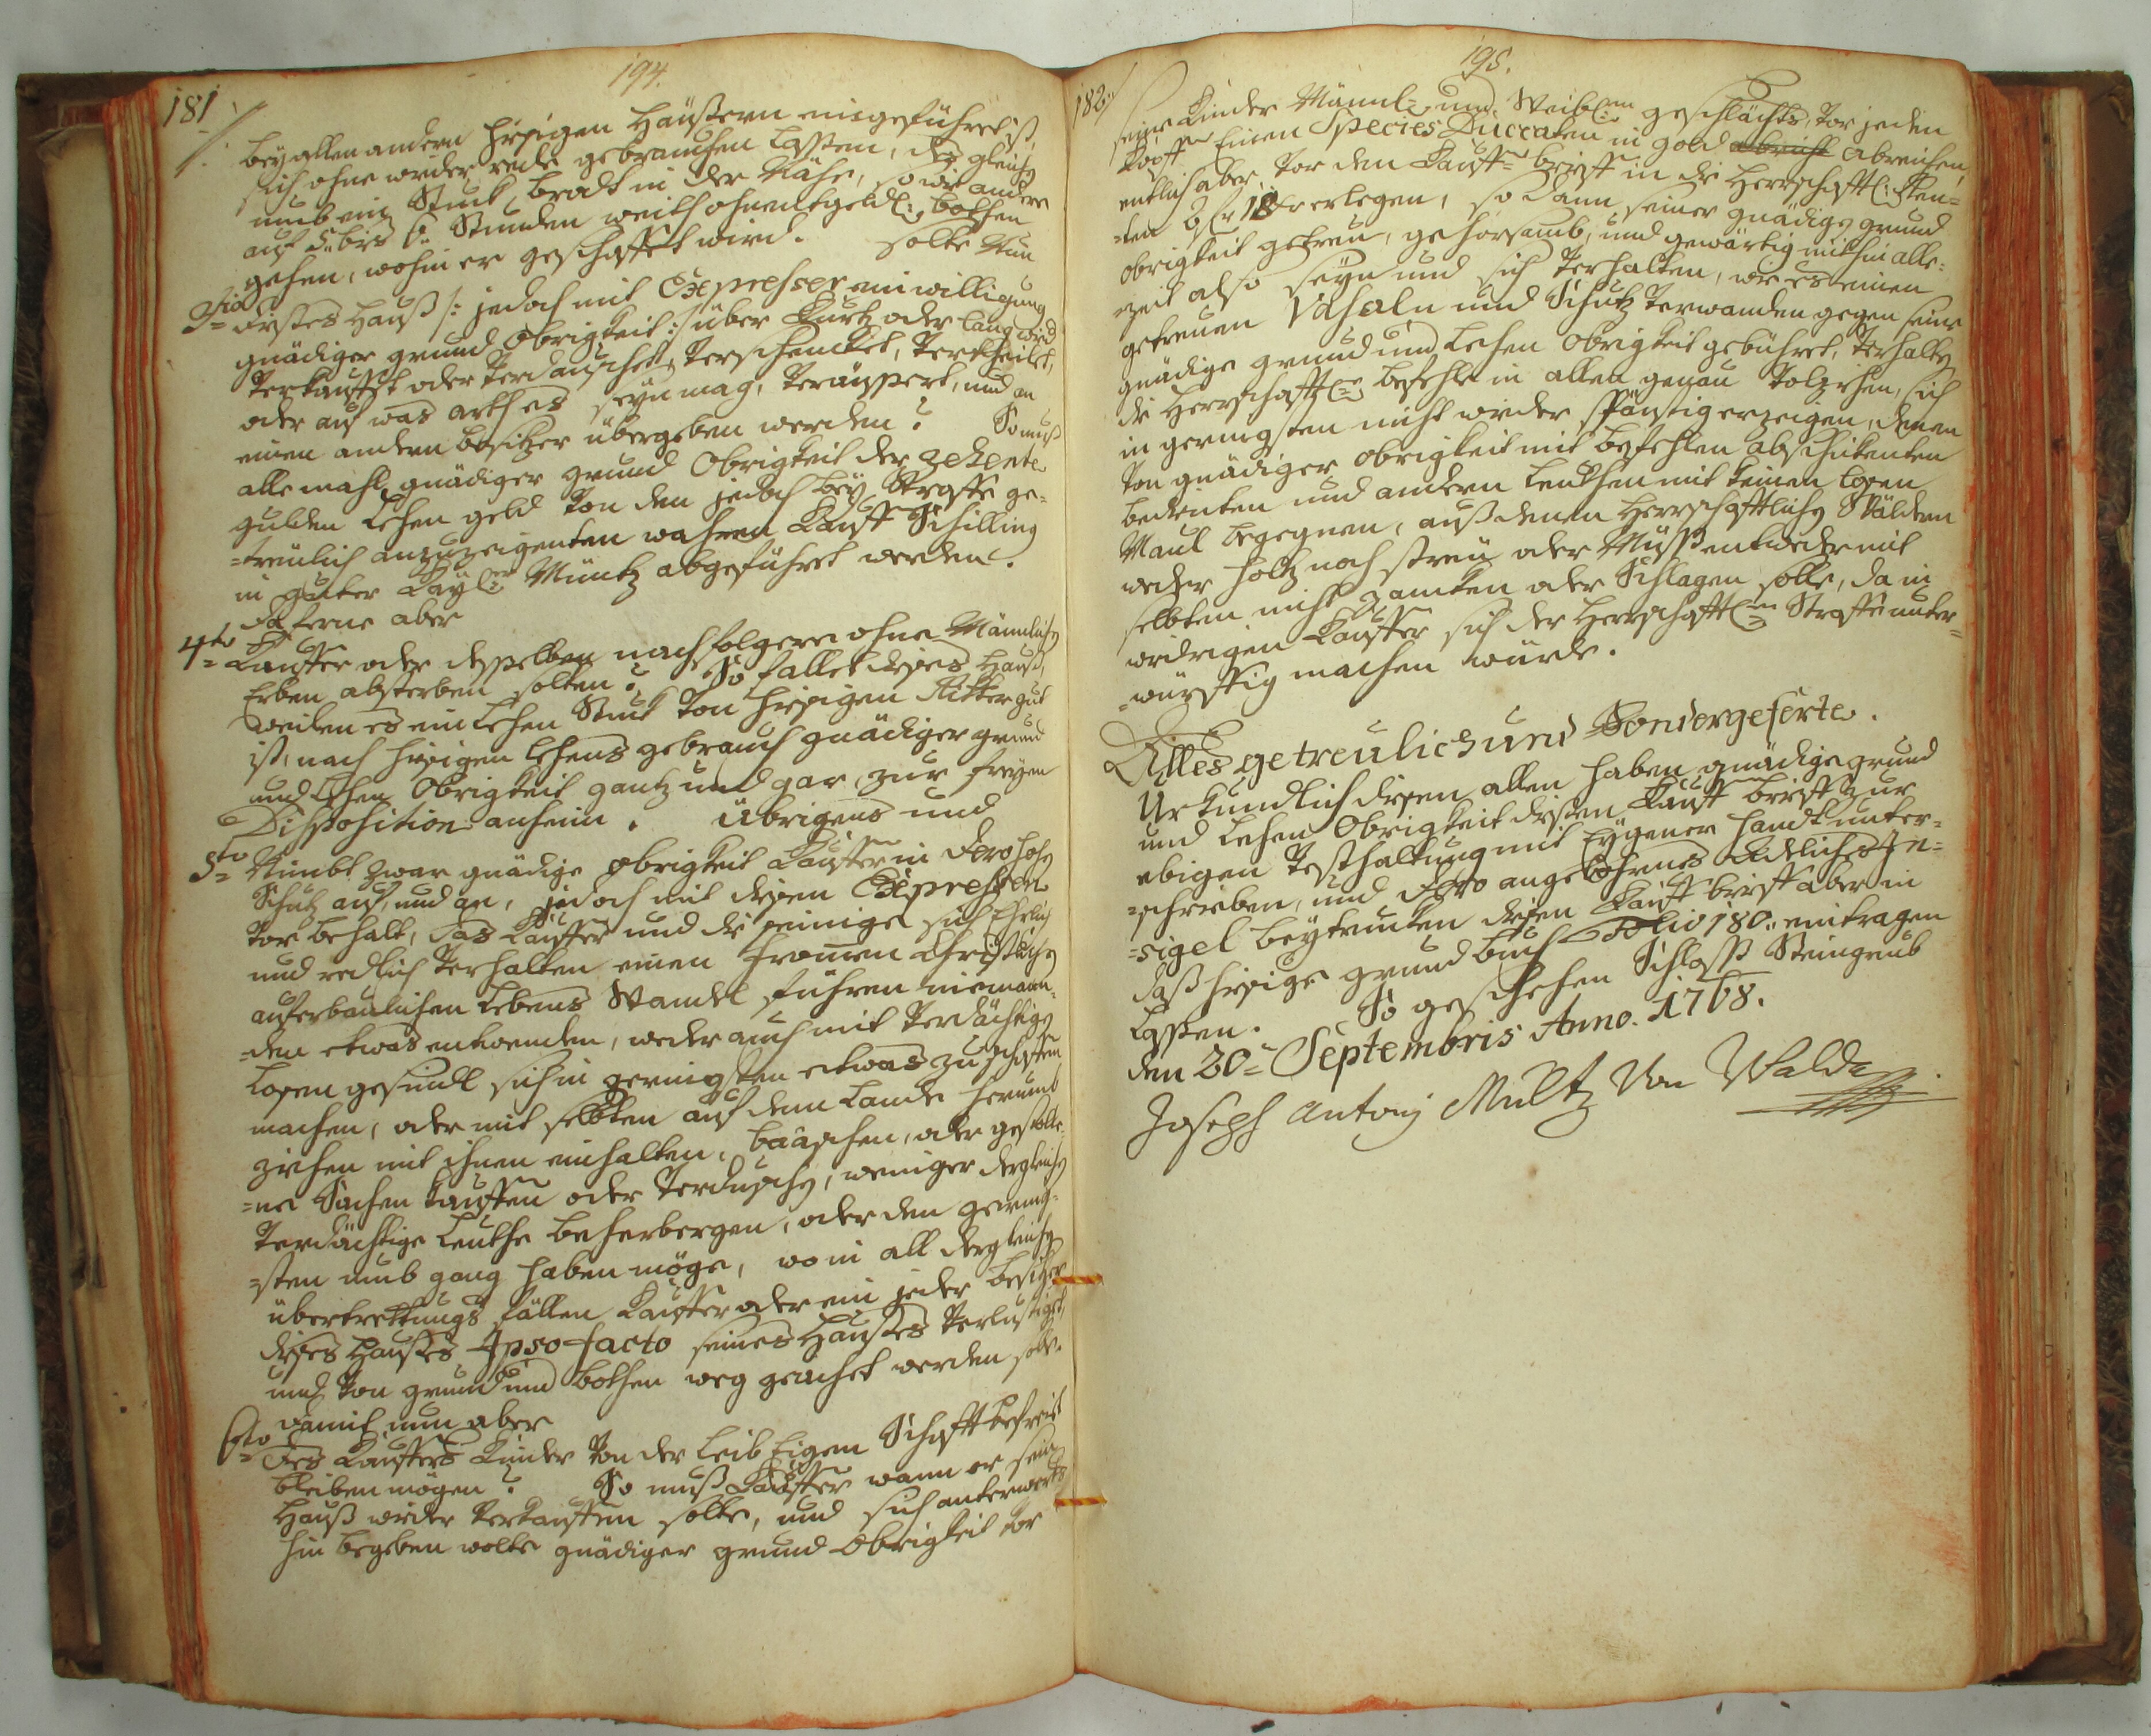 194.
181
bey allen andern hiesigen Häußern eingeführet ist,
sich ohne wieder rede gebrauchen lassen, des gleichen
umb ein Stuck brodt in der Nähe, so wie andere
auf 5. bis 6. Stunden weith ohnentgeldl: bothen
gehen, wohin er geschaffet wird. solte Nun
3tio dieses Hauß /: jedoch mit Expresser einwilligung
gnädiger grund Obrigkeit :/ über Kurtz oder lang wied
verkauffet oder verdauschet, verschencket, vertheilet,
oder auf was arth es seyn mag, veräussert, und an
einen andern besitzer übergeben werden? So muß
alle mahl gnädiger grund Obrigkeit der zehente
gulden Lehen geld von den jedoch bey Straffe ge=
=treulich anzuzeigenten wahren Kauff Schilling
in guter Kayl: Müntz abgeführet werden.
daferne aber
4to Kauffer oder desselben nachfolgere ohne Männlichen
Erben absterben solten? So fallet dieses Hauß,
weilen es ein Lehen Stuck von hiesigen Ritter gut
ist, nach hiesigen Lehens gebrauch gnädiger grund
und Lehen Obrigkeit gantz und gar zur freyen
Disposition anheim. Übrigens und
5to Nimbt zwar gnädige Obrigkeit Kauffer in dero hohen
Schutz auf, und an, jedoch mit diesen Expressen
vor behalt, das Kauffer und die seinige sich Ehrlich
und redlich verhalten einen frommen Christlichen
auferbaulichen Lebens Wandl führen nieman=
=den etwas entwenden, weder auch mit verdächtigen
losen gesindl sich in geringsten etwas zu schaffen
machen, oder mit selbten auf dem Lande herumb
ziehen mit ihnen einhalten, bauschen, oder gestolle=
=ne Sachen kauffen oder verduschen, weniger dergleichen
verdächtige Leuthe beherbergen, oder den gering=
=sten umbgang haben möge, wo in all dergleichen
übertrettungs fällen Kauffer oder ein jeder besitzer
dieses Haußes Ipso facto seines Haußes verlustiget,
und von grund und bothen weg geachet werden solle.
damit nun aber
6to des Kauffers Kinder von der Leib Eigenschafft befreit
bleiben mögen? So muß Kauffer wann er sein
Hauß wieder verkauffen solte, und sich anterwerts
hin begeben wolte gnädiger grund Obrigkeit vor
195.
182.
seine Kinder Männl: und Weibl: geschlächts, vor jeden
Kopff Einen Species Duccaten in gold abreicht abreichen,
entlich aber, vor den Kauff brieff in die Herrschafftl: Ren=
=ten 2 fl 18 xr erlegen, so dann seiner gnädigen grund
Obrigkeit getreu, gehorsamb, und gewärtig mithin alle=
=zeit also seyn und sich verhalten, wie es einen
getreuen Vasaln und Schutz verwanden gegen seine
gnädige grund und Lehen Obrigkeit gebühret, verhalten
die Herrschafftl: befehle in allen genau volziehen, sich
in geringsten nicht wieder spänstig erzeigen, denen
von gnädiger Obrigkeit mit befehlen abschickenten
bedienten und andern Leuthen mit keinen losen
Maul begegnen, auß denen Herrschafftlichen Wäldern
weder Holtz noch streu oder Müß entweder mit
selbten nicht zancken oder Schlagen solle, da in
wiedrigen Kauffer sich der Herrschafftl: Straffe unter=
=würffig machen würde.
Alles getreulich und Sonder geferte.
Urkundlich diesen allen haben gnädige grund
und Lehen Obrigkeit diesen Kauff brieff zur
ebigen Vesthaltung mit Eygener Handt unter=
=schrieben, und dero angebohrnes Adeliches In=
=sigel beytrucken diesen Kauff brieff aber in
daß hiesige grund buch Folio 180. eintragen
lassen. So geschehen Schloß Steingrub
den 20= Septembris Anno. 1768.
Joseph Antonj Mulz Von Waldau